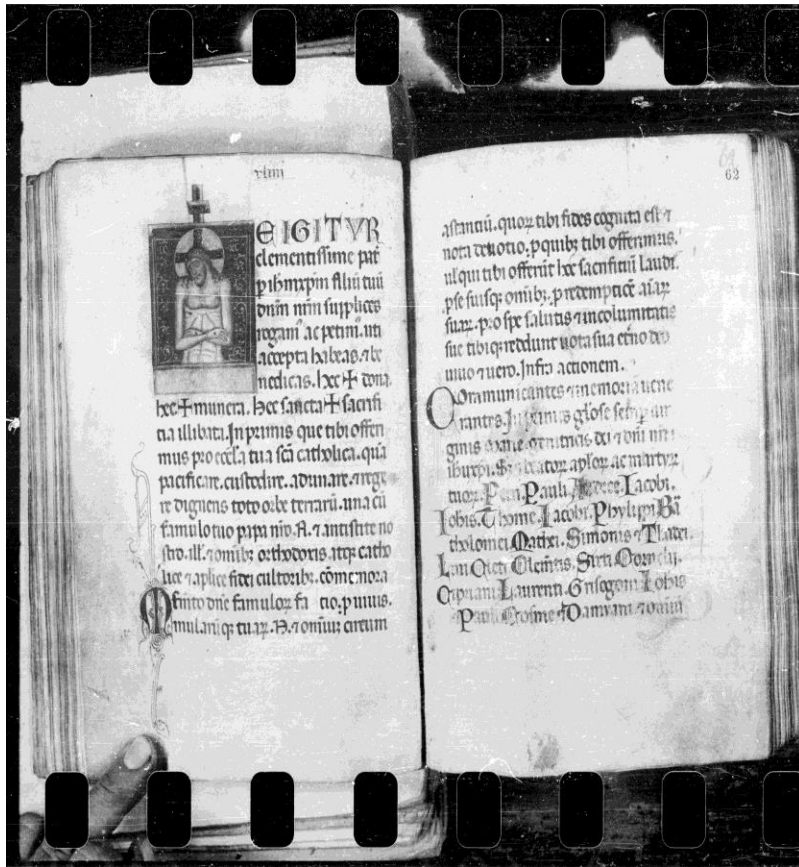 xliiii
E IGITVR
clementissime pat
p ihm xpm filiū tuū
dnm nrm supplices
rogam' ac petim'. uti
accepta habeas. ⁊ be
nedicas. hec ✝ dona.
hec ✝ munera. hec sancta ✝ sacrifi
cia illibata. In primis que tibi offeri
mus pro eccl̄a tua sc̄a catholica. quā
pacificare. custodire. adunare. ⁊ rege
re digneris toto orbe terrarū. una cū
famulo tuo papa nr̄o. N. ⁊ antistite no
stro. ill. ⁊ omnibꝫ orthodoxis. atqꝫ catho
lice ⁊ aplice fidei cultoribꝫ. cōmemora
Memto dn̄e famuloꝝ fa tio. p uiuis.
mularūqꝫ tuaꝝ. N. ⁊ omniuꝫ circum
62
astantiū. quoꝝ tibi fides cognita est ⁊
nota deuotio. p quibꝫ tibi offerimus.
ul qui tibi offerūt hoc sacrificiū laudi.
p se suisqꝫ omibꝫ. p redemptiōe aīaꝝ
suaꝝ. pro spe salutis ⁊ incolumitatis
sue tibiqꝫ reddunt uota sua etno deo
uiuo ⁊ uero. Infra actionem.
Communicantes ⁊ memoriā uene
rantes. In primis gl̄ose semp uir
ginis marie. genitricis dei ⁊ dn̄i nr̄i
ihu xpi. Sꝫ ⁊ beatoꝝ aploꝝ ac martyꝝ
tuoꝝ. Petri. Pauli. Andree. Iacobi.
Iohis. Thome. Iacobi. Phylippi. Ba
tholomei. Mathei. Simonis ⁊ Thadei.
Lini. Cleti. Clemētis. Sixti. Cornelij.
Cipriani. Laurenti. Grisogoni. Iohis
Pauli. Cosme ⁊ Damiani. ⁊ omniū